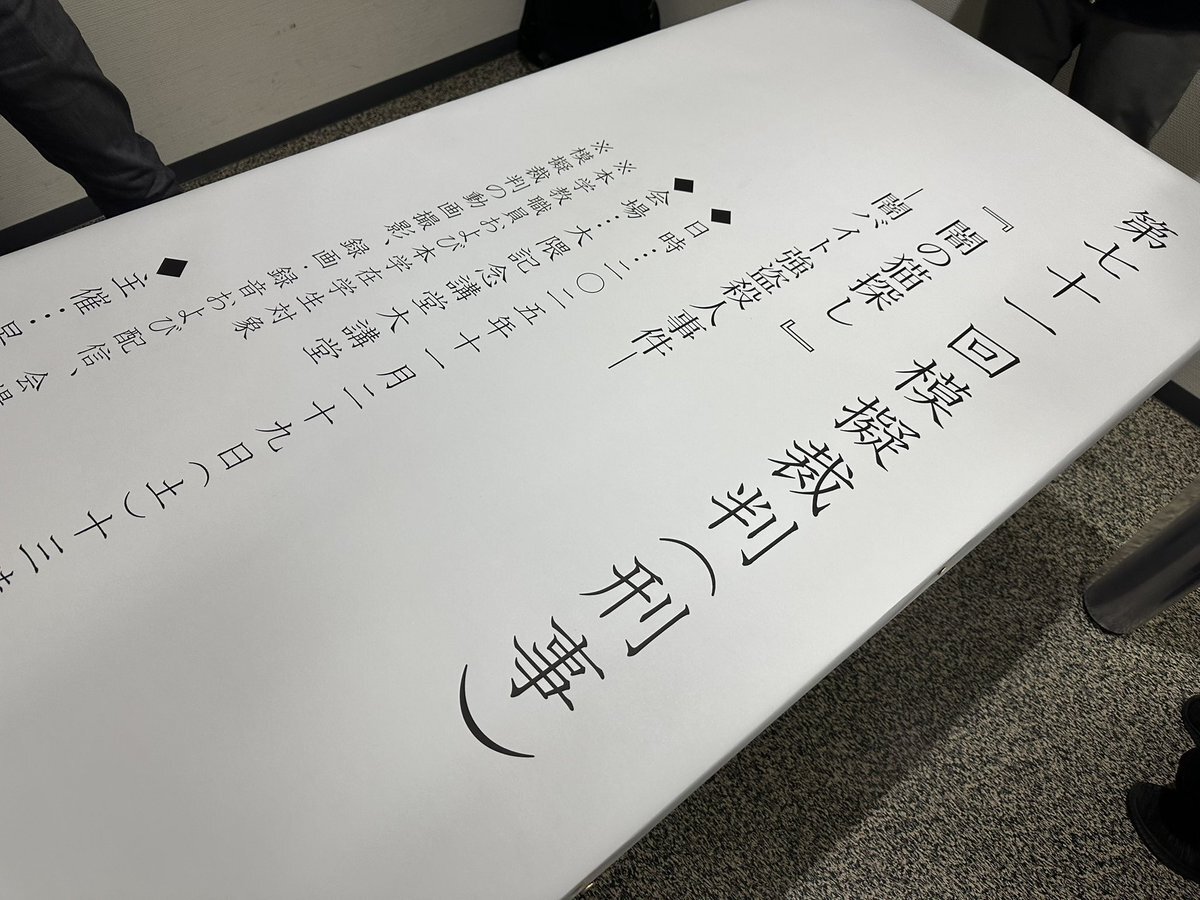 第七十一回模擬裁判（刑事）
『闇の猫探し』
―闇バイト強盗殺人事件―
◆日時：二〇二五年十一月二十九日（土）十三
◆会場：大隈記念講堂大講堂
※本学教職員および本学在学生対象
※模擬裁判の動画撮影、録画・録音および配信、会場
◆主催：